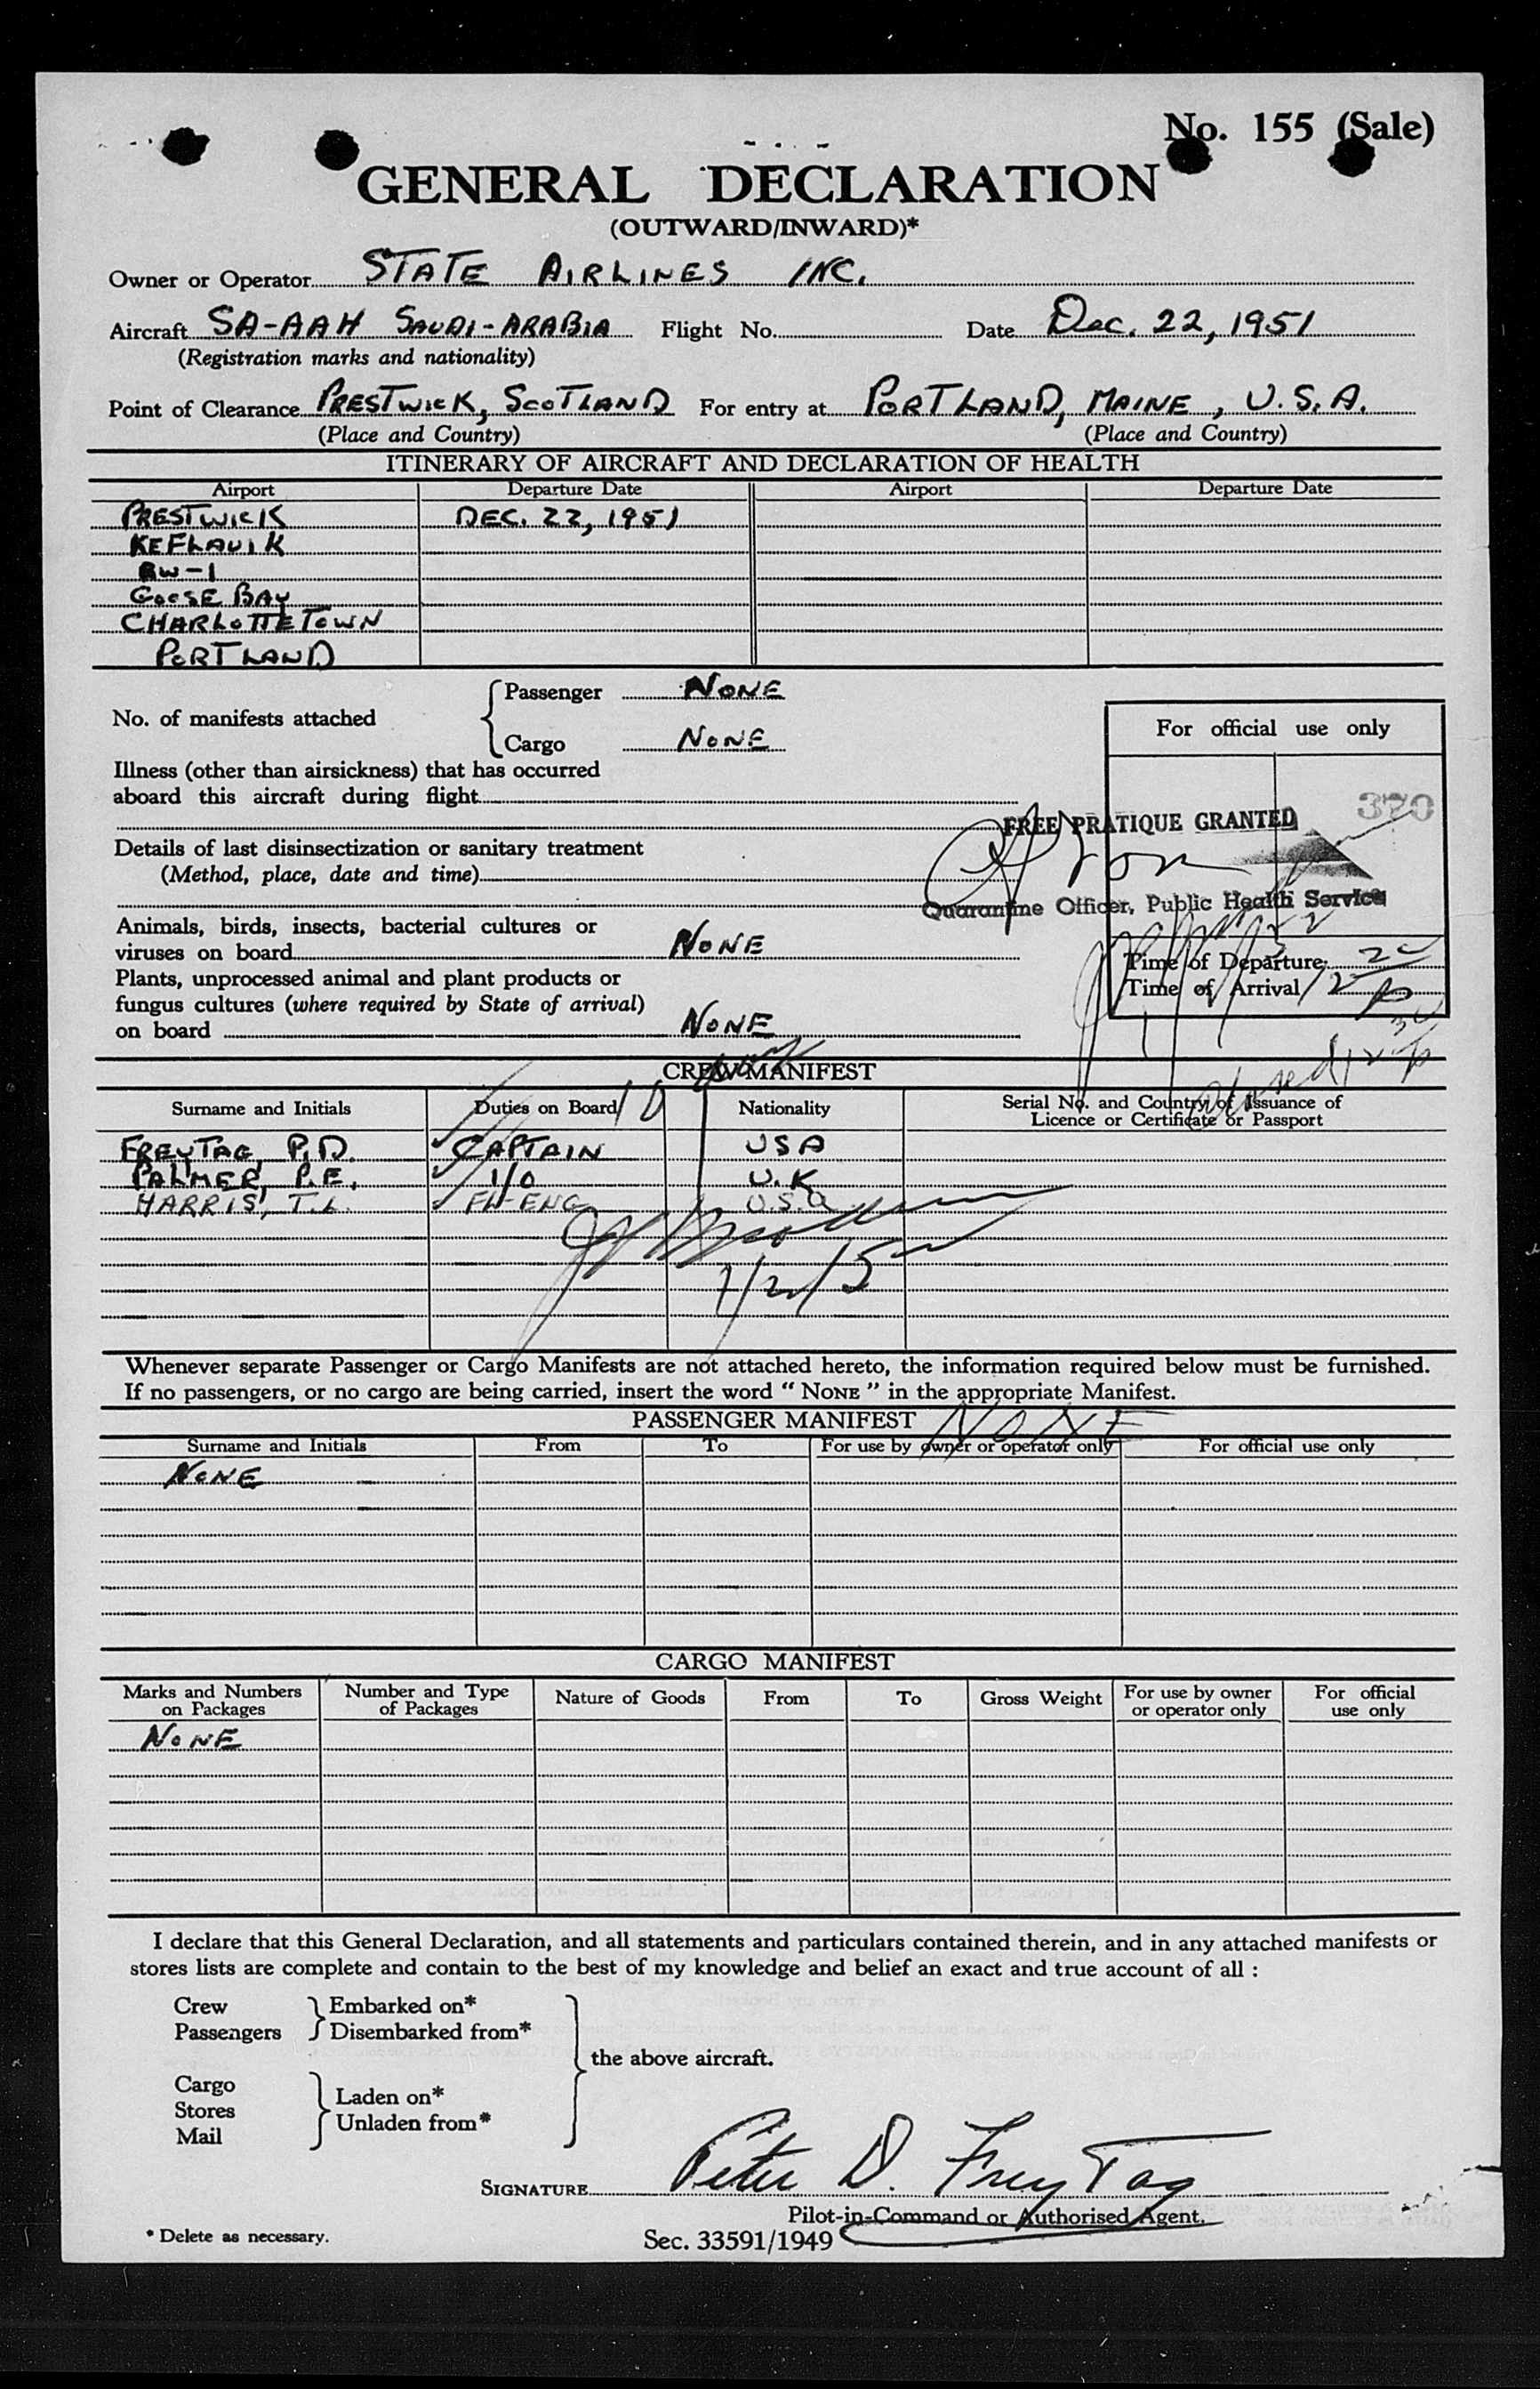 No. 155 (Sale)
GENERAL DECLARATION
(OUTWARD/INWARD)*
Owner or Operator STATE AIRLINES INC.
Aircraft SA-AAH SAUDI-ARABIA Flight No. Date Dec. 22, 1951
(Registration marks and nationality)
Point of Clearance PRESTWICK, SCOTLAND For entry at PORTLAND, MAINE, U.S.A.
(Place and Country) (Place and Country)
ITINERARY OF AIRCRAFT AND DECLARATION OF HEALTH
Airport Departure Date Airport Departure Date
PRESTWICK DEC. 22, 1951
KEFLAVIK
BW-1
GOOSE BAY
CHARLOTTETOWN
PORTLAND
No. of manifests attached
Passenger NONE
Cargo NONE
For official use only
Illness (other than airsickness) that has occurred
aboard this aircraft during flight
370
FREE PRATIQUE GRANTED
Details of last disinsectization or sanitary treatment
(Method, place, date and time)
Quarantine Officer, Public Health Service
Animals, birds, insects, bacterial cultures or
viruses on board NONE
Time of Departure
Time of Arrival
Plants, unprocessed animal and plant products or
fungus cultures (where required by State of arrival)
on board NONE
CREW MANIFEST
Surname and Initials Duties on Board Nationality Serial No. and Country of Issuance of
Licence or Certificate or Passport
FREYTAG, P.D. CAPTAIN USA
PALMER, P.E. 1/O U.K
HARRIS, T.L. FL-ENG U.S.A
1/2/52
Whenever separate Passenger or Cargo Manifests are not attached hereto, the information required below must be furnished.
If no passengers, or no cargo are being carried, insert the word “ NONE ” in the appropriate Manifest.
PASSENGER MANIFEST NONE
Surname and Initials From To For use by owner or operator only For official use only
NONE
CARGO MANIFEST
Marks and Numbers on Packages Number and Type of Packages Nature of Goods From To Gross Weight For use by owner or operator only For official use only
NONE
I declare that this General Declaration, and all statements and particulars contained therein, and in any attached manifests or
stores lists are complete and contain to the best of my knowledge and belief an exact and true account of all :
Crew Embarked on*
Passengers Disembarked from*
the above aircraft.
Cargo
Stores
Mail
Laden on*
Unladen from*
SIGNATURE Peter D. FreyTag
Pilot-in-Command or Authorised Agent.
* Delete as necessary.
Sec. 33591/1949